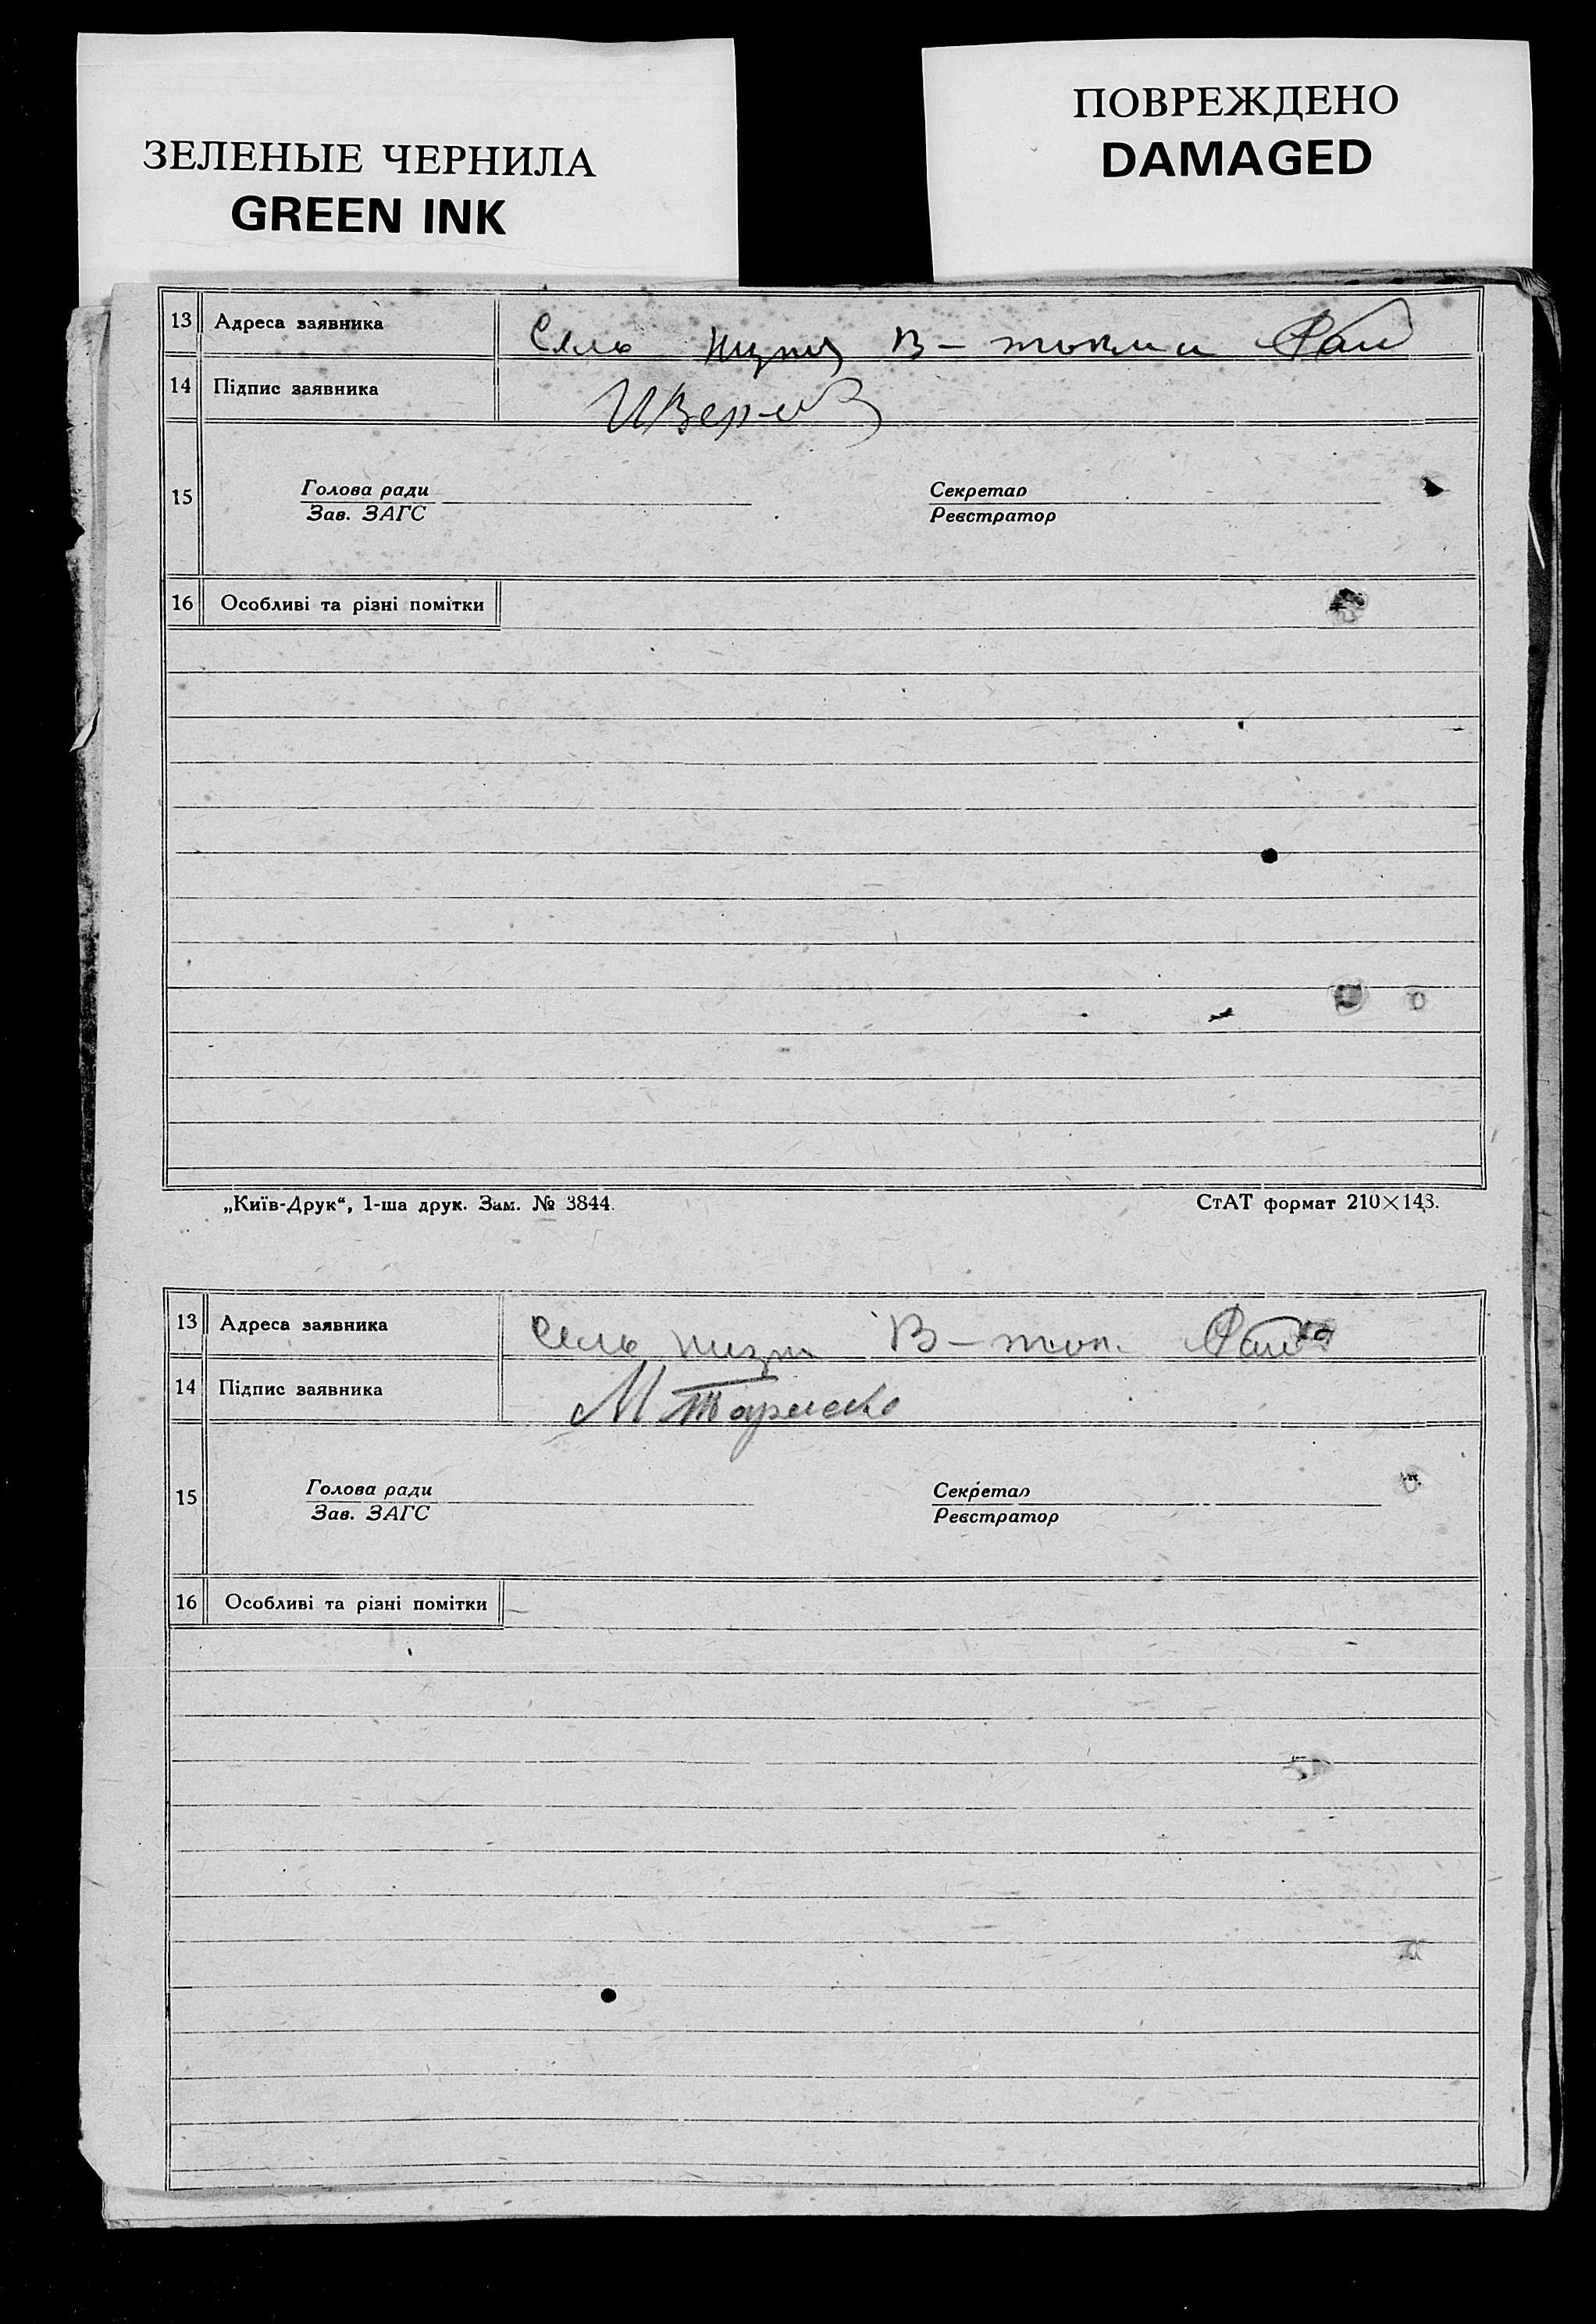 ЗЕЛЕНЫЕ ЧЕРНИЛА
GREEN INK
ПОВРЕЖДЕНО
DAMAGED
13 Адреса заявника Село В-
14 Підпис заявника
15 Голова ради Секретар
Зав. ЗАГС Реєстратор
16 Особливі та різні помітки
„Київ-Друк“, 1-ша друк. Зам. № 3844. СтАТ формат 210×143.
13 Адреса заявника Село В-
14 Підпис заявника
15 Голова ради Секретар
Зав. ЗАГС Реєстратор
16 Особливі та різні помітки